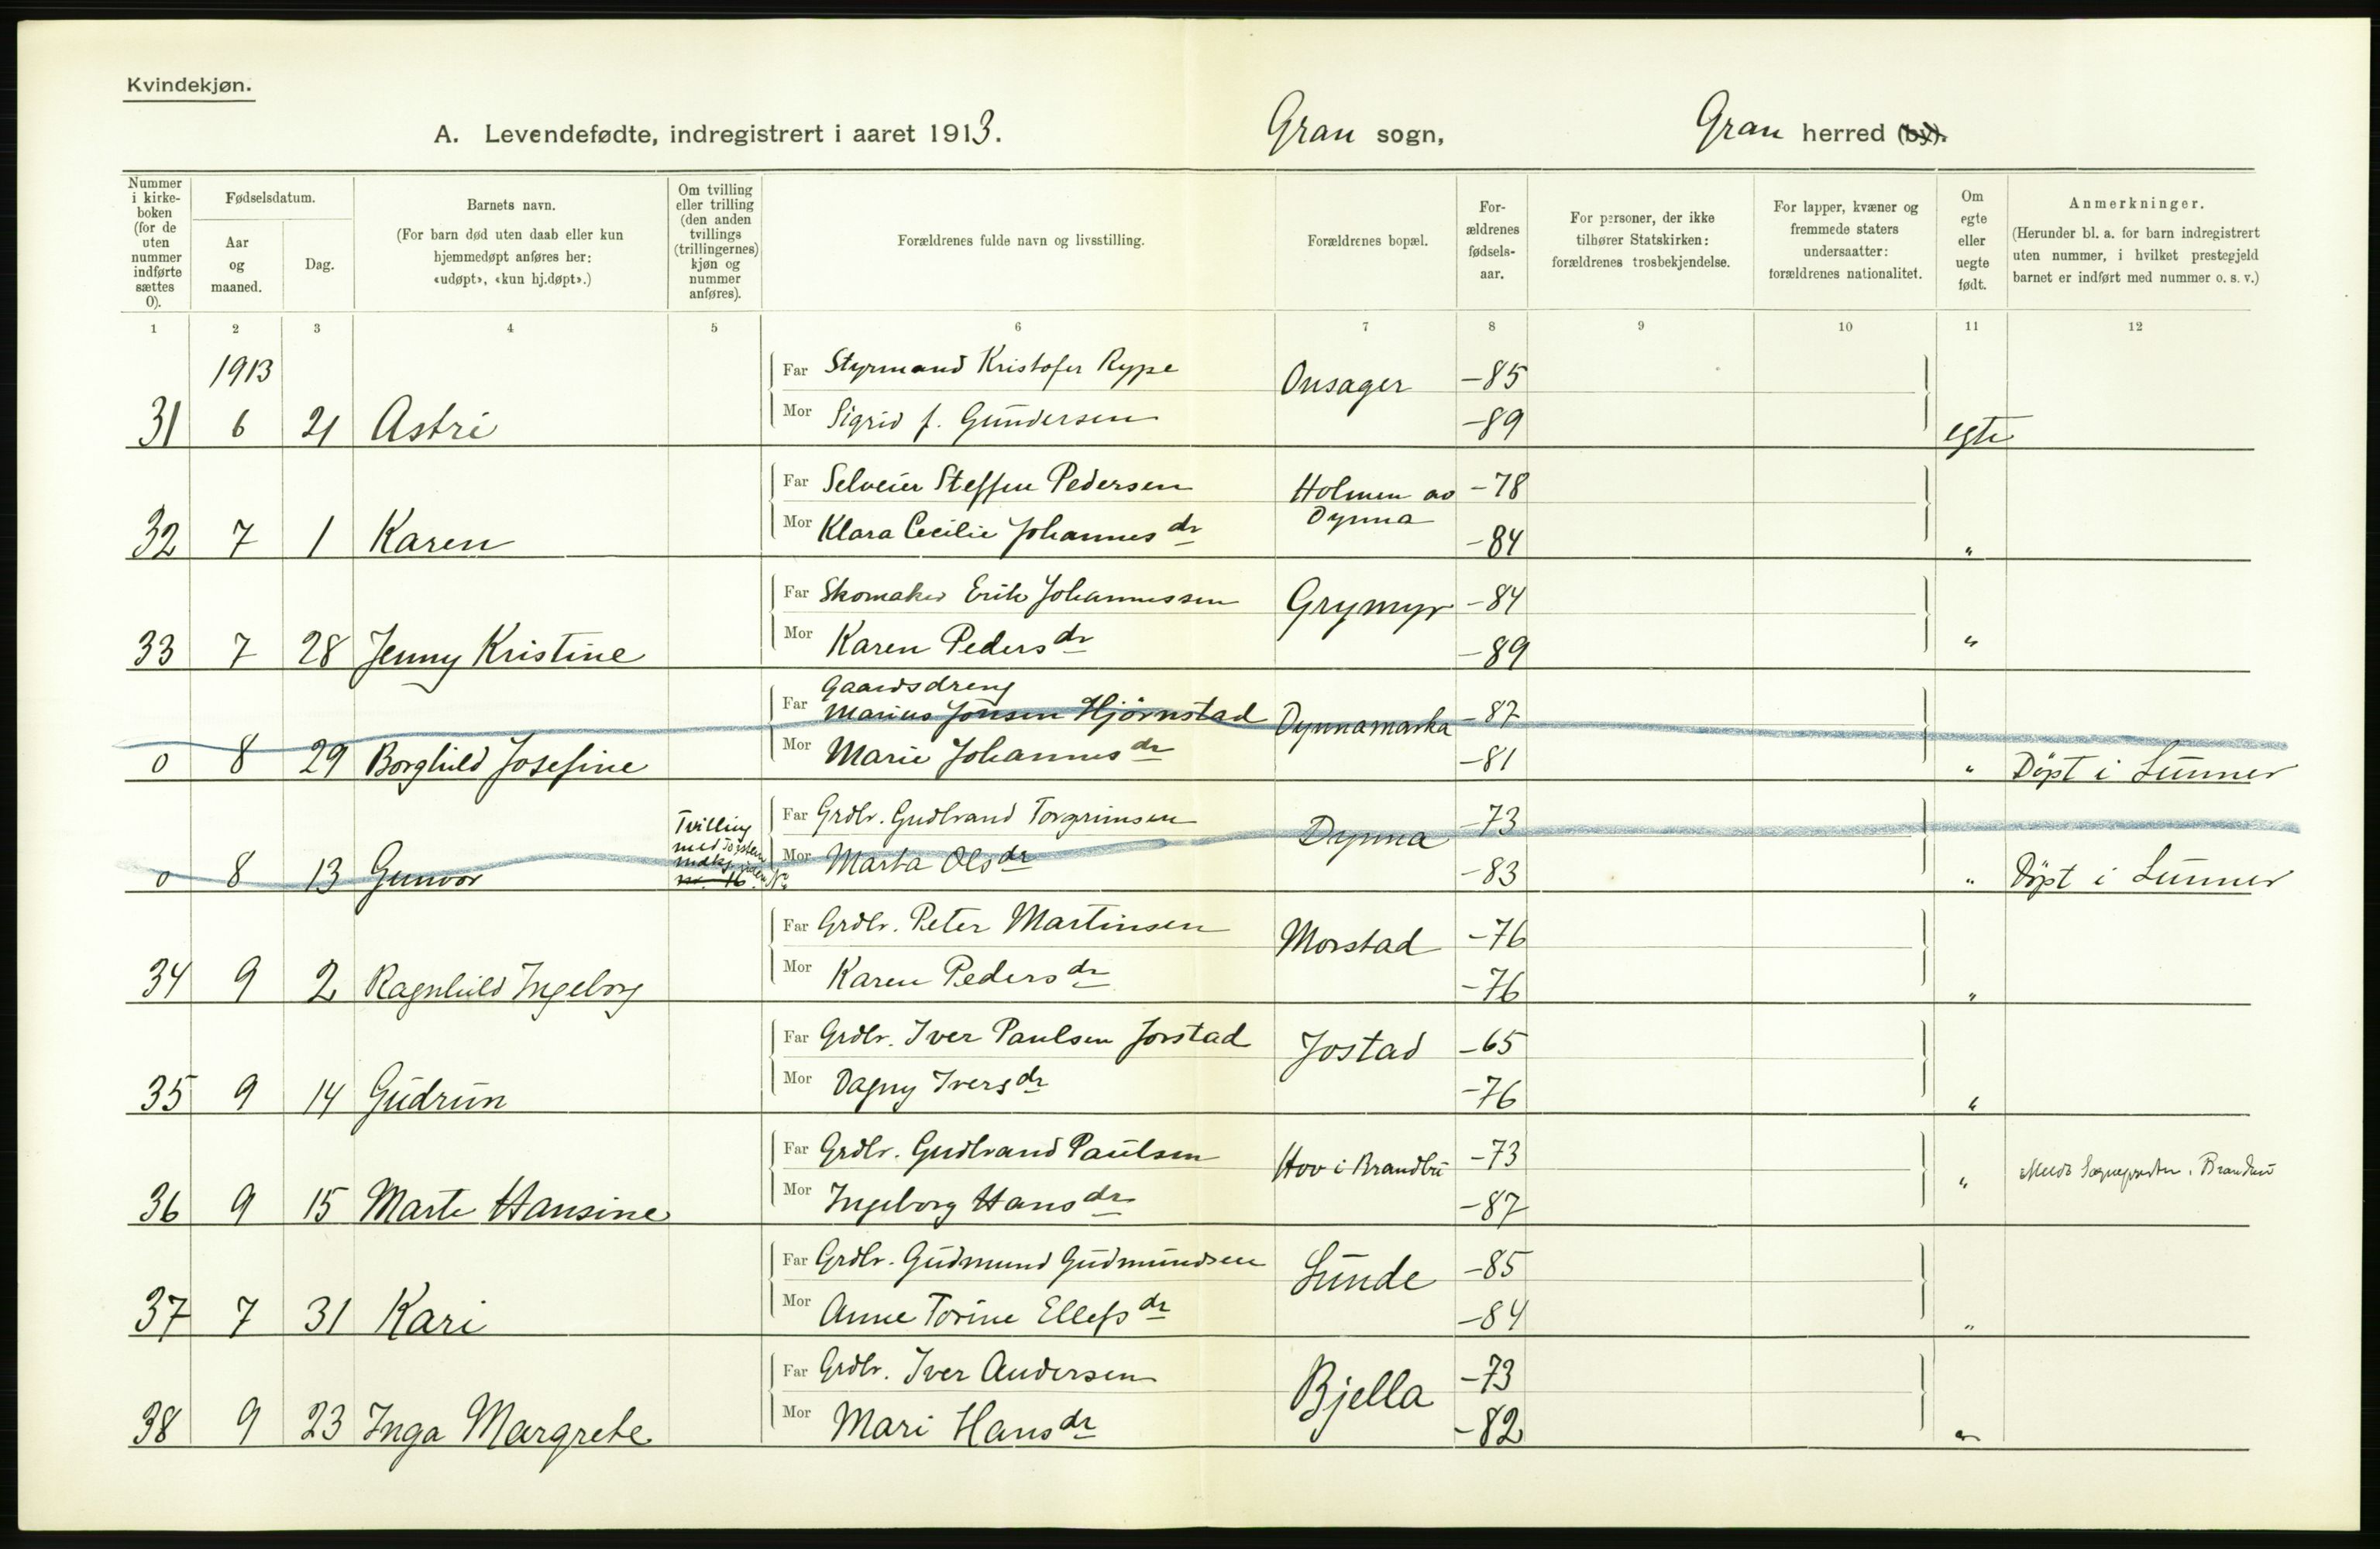 Kvindekjøn.
A. Levendefødte, indregistrert i aaret 1913. Gran sogn, Gran herred (by).
Nummer i kirkeboken (for de uten nummer indførte sættes 0).
Fødselsdatum.
Aar og maaned.
Dag.
Barnets navn.
(For barn død uten daab eller kun hjemmedøpt anføres her: «udøpt», «kun hj.døpt».)
Om tvilling eller trilling (den anden tvillings (trillingernes) kjøn og nummer anføres).
Forældrenes fulde navn og livsstilling.
Forældrenes bopæl.
For-ældrenes fødsels-aar.
For personer, der ikke tilhører Statskirken: forældrenes trosbekjendelse.
For lapper, kvæner og fremmede staters undersaatter: forældrenes nationalitet.
Om egte eller uegte født.
Anmerkninger.
(Herunder bl. a. for barn indregistrert uten nummer, i hvilket prestegjeld barnet er indført med nummer o. s. v.)
1 2 3 4 5 6 7 8 9 10 11 12
1913
Far Styrmand Kristofer Rype Onsager -85
31 6 21 Astri Mor Sigrid f. Gundersen -89 egte
Far Selveier Steffen Pedersen Holmen av Dynna -78
32 7 1 Karen Mor Klara Cecilie Johannesdr -84 "
Far Skomaker Erik Johannessen Grymyr -84
33 7 28 Jenny Kristine Mor Karen Pedersdr -89 "
Gaardsdreng
Far Marius Jonsen Hjørnstad Dynnamarka -87
0 8 29 Borghild Josefine Mor Marie Johannesdr -81 " Døpt i Lunner
Far Grdbr. Gudbrand Torgrimsen Dynna -73
Tvilling
0 8 13 Gunvor Mor Marta Olsdr -83 " Døpt i Lunner
Far Grdbr. Peter Martinsen Morstad -76
34 9 2 Ragnhild Ingeborg Mor Karen Pedersdr -76 "
Far Grdbr. Iver Paulsen Jorstad Jostad -65
35 9 14 Gudrun Mor Dagny Iversdr -76 "
Far Grdbr. Gudbrand Paulsen Hov i Brandbu -73
36 9 15 Marte Hansine Mor Ingeborg Hansdr -87 "
Far Grdbr. Gudmund Gudmundsen Lunde -85
37 7 31 Kari Mor Anne Torine Ellefsdr -84 "
Far Grdbr. Iver Andersen Bjella -73
38 9 23 Inga Margrete Mor Mari Hansdr -82 "